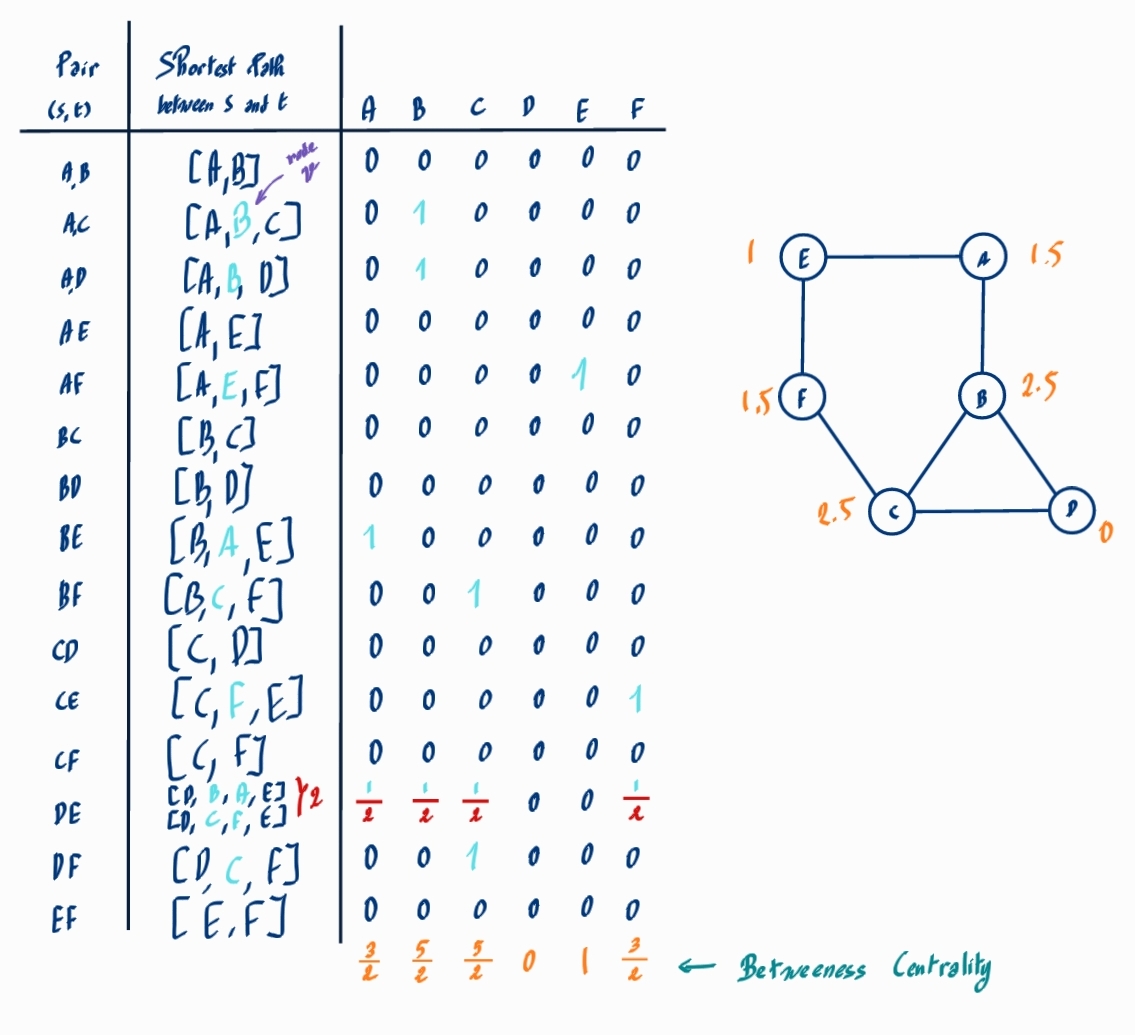 Pair Shortest Path
(s,t) between s and t A B C D E F
A,B [A,B] 0 0 0 0 0 0
node
v
A,C [A,B,C] 0 1 0 0 0 0
A,D [A,B,D] 0 1 0 0 0 0
AE [A,E] 0 0 0 0 0 0
AF [A,E,F] 0 0 0 0 1 0
BC [B,C] 0 0 0 0 0 0
BD [B,D] 0 0 0 0 0 0
BE [B,A,E] 1 0 0 0 0 0
BF [B,C,F] 0 0 1 0 0 0
CD [C,D] 0 0 0 0 0 0
CE [C,F,E] 0 0 0 0 0 1
CF [C,F] 0 0 0 0 0 0
DE [D,B,A,E] }2 1/2 1/2 1/2 0 0 1/2
[D,C,F,E]
DF [D,C,F] 0 0 1 0 0 0
EF [E,F] 0 0 0 0 0 0
3/2 5/2 5/2 0 1 3/2 ← Betweeness Centrality
1 E A 1.5
1.5 F B 2.5
2.5 C D 0